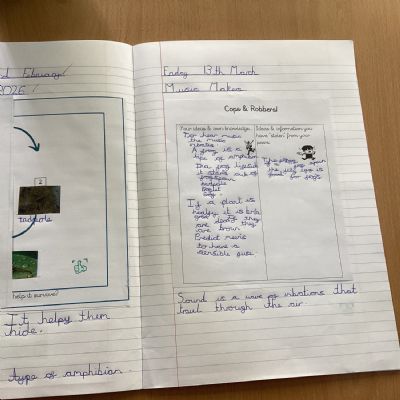 d February
2026
2
tadpole
help it survive?
It helps them
hide.
type of amphibian.
Friday 13th March
Music Makes
Cops & Robbers!
Your ideas & own knowledge.
To hear music
the music
vibrates
A frog is a
type of amphibian
the frog lifecycle
it starts out of
frogspawn
tadpole
froglet
frog.
If a plant is
healthy it is
green
are they
are brown
Predict means
to have a
sensible guess.
Ideas & information you
have 'stolen' from your
peers.
the jelly
food for frogs
Sound is a wave of vibrations that
travel through the air.